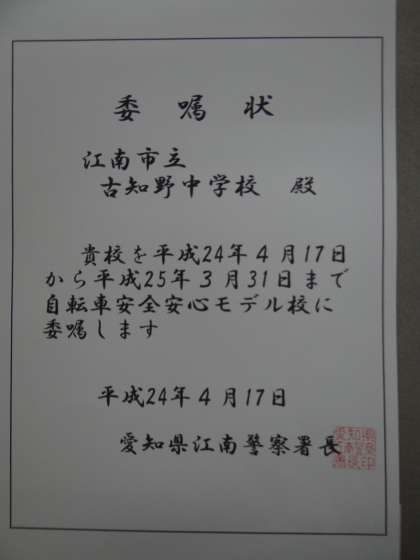 委嘱状
江南市立
古知野中学校 殿
貴校を平成24年4月17日
から平成25年3月31日まで
自転車安全安心モデル校に
委嘱します
平成24年4月17日
愛知県江南警察署長